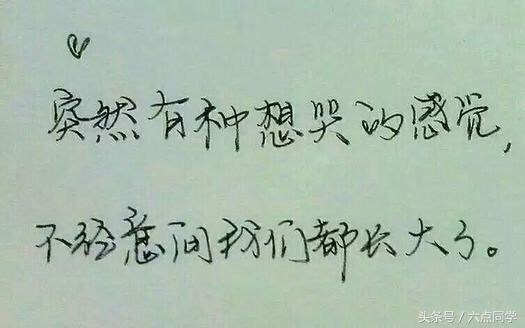 突然有种想哭的感觉,
不经意间我们都长大了。
头条号/六点同学